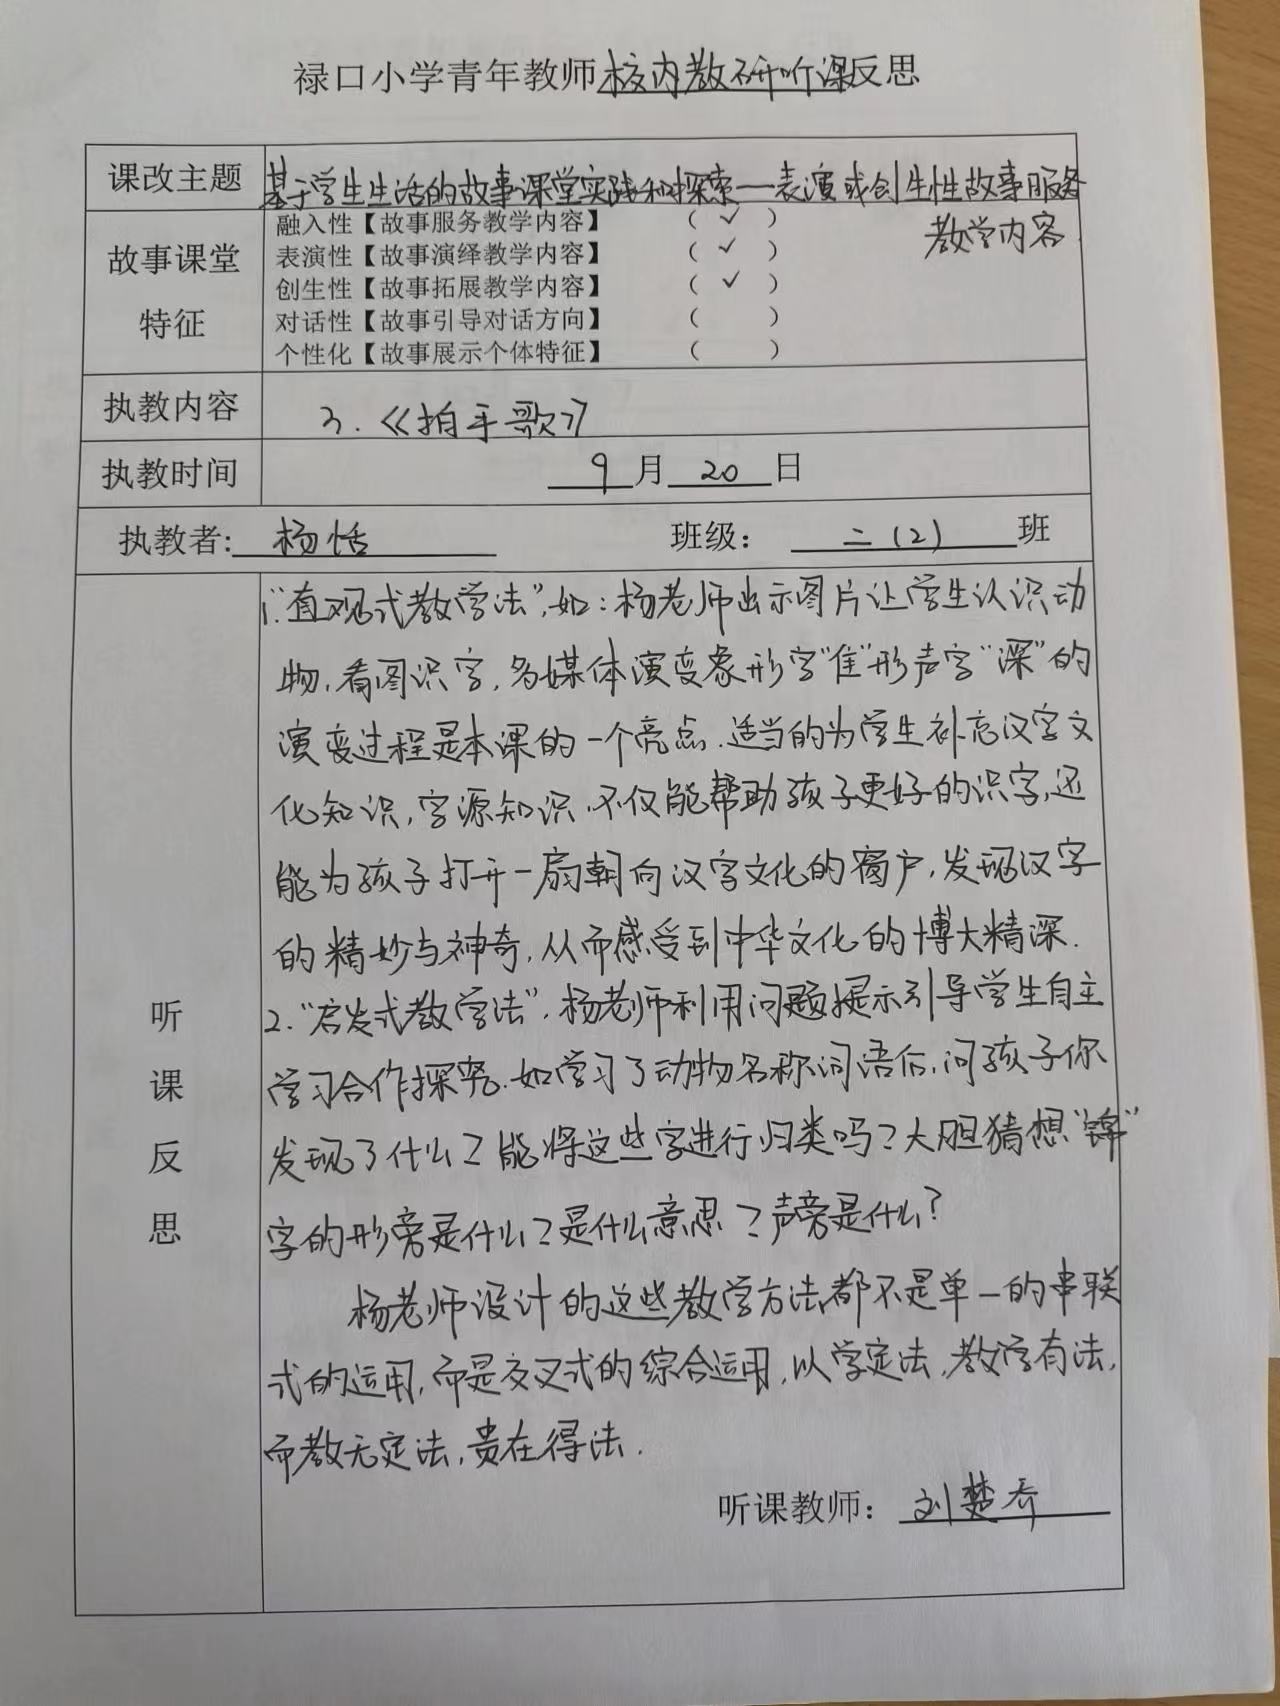 禄口小学青年教师校内教研听课反思
课改主题 基于学生生活的故事课堂实践和探索——表演或创生性故事服务
教学内容.
故事课堂
特征
融入性【故事服务教学内容】 ( ✓ )
表演性【故事演绎教学内容】 ( ✓ )
创生性【故事拓展教学内容】 ( ✓ )
对话性【故事引导对话方向】 ( )
个性化【故事展示个体特征】 ( )
执教内容 3.《拍手歌》
执教时间 9月20日
执教者: 杨恬 班级： 二(2)班
听
课
反
思
1."直观式教学法",如：杨老师出示图片让学生认识动
物,看图识字,多媒体演变象形字"隹"形声字"深"的
演变过程是本课的一个亮点.适当的为学生补充汉字文
化知识,字源知识,不仅能帮助孩子更好的识字,还
能为孩子打开一扇朝向汉字文化的窗户,发现汉字
的精妙与神奇,从而感受到中华文化的博大精深.
2."启发式教学法".杨老师利用问题提示引导学生自主
学习合作探究.如学习了动物名称词语后,问孩子你
发现了什么？能将这些字进行归类吗？大胆猜想"锦"
字的形旁是什么？是什么意思？声旁是什么？
杨老师设计的这些教学方法都不是单一的串联
式的运用,而是交叉式的综合运用,以学定法,教学有法,
而教无定法,贵在得法.
听课教师： 刘楚乔